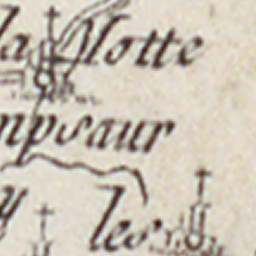 la Motte
mpsaur
y
les